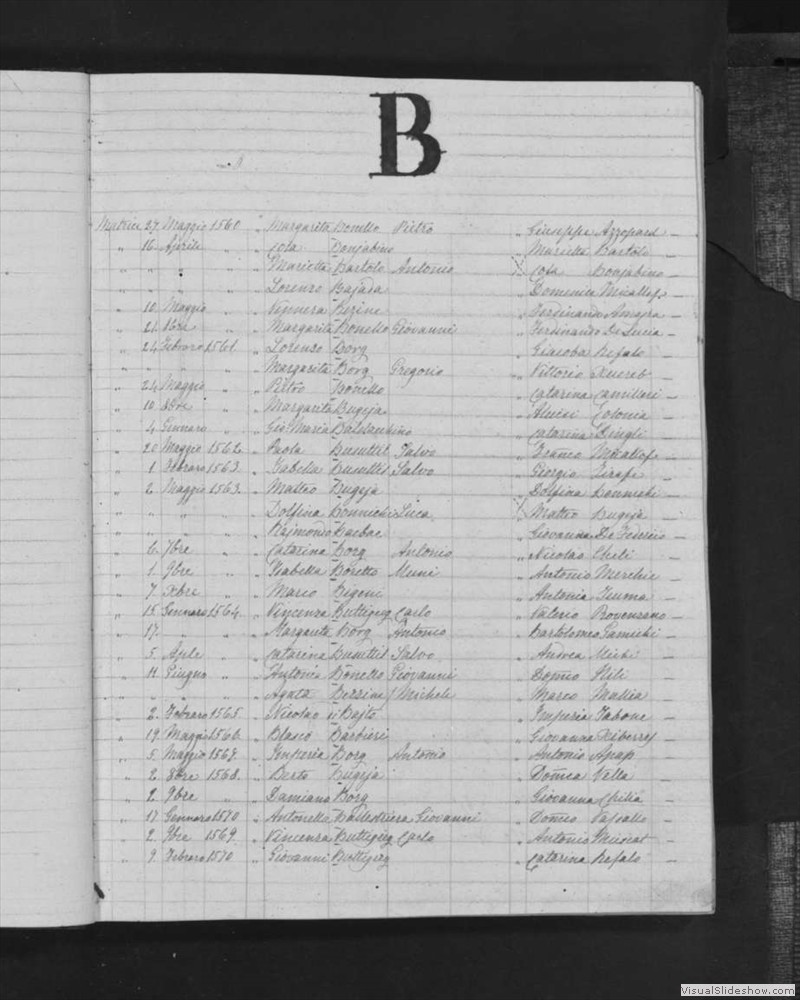 B
Matrice 27 Maggio 1560 " Margarita Bonello Pietro " Giuseppe Azzopard –
" 16 Aprile " " Cola Bonjabino " Marietta Bartolo –
" " " " Marietta Bartolo Antonio " Cola Bonjabino –
" " " " Lorenzo Bajada " Domenica Micallef –
" 10 Maggio " " Vennera " Ferdinando –
" 21 " " Margarita Bonello Giovanni " Ferdinando De Lucia –
" 24 Febraro 1561 " Lorenzo Borg " Giacoba Refalo –
" " " " Margarita Borg Gregorio " Vittorio Xuereb –
" 24 Maggio " " Pietro Bonello " Catarina Camilleri –
" 10 " " Margarita Bugeja " Colonia –
" 4 Gennaro " " Gio Maria " Catarina Dingli –
" 20 Maggio 1562 " Paola Busuttil Salvo " Franco Micallef –
" 1 Febraro 1563 " Isabella Busuttil Salvo " Giorgio –
" 2 Maggio 1563 " Matteo Bugeja " Dolfina Bonnichi –
" " " " Dolfina Bonnichi Luca " Matteo Bugeja –
" " " " Raimondo " Giovanna De Federico –
" 6 7bre " " Catarina Borg Antonio " Nicolao –
" 1 9bre " " Isabella Muni " Antonio –
" 7 Xbre " " Marco Bigeni " Antonia –
" 15 Gennaro 1564 " Vincenza Buttigieg Carlo " Valerio Provenzano –
" 17 " " " Margarita Borg Antonio " Bartolomeo –
" 5 Aple " " Catarina Busuttil Salvo " Andrea –
" 11 Giugno " " Antonia Bonello Giovanni –
" " " " Agata " Marco Mallia –
" 2 Febraro 1565 " Nicolao " Imperia Tabone –
" 19 Maggio 1566 " Blasco Barbieri " Giovanna Xiberry –
" 5 Maggio 1567 " Imperia Borg Antonio " Antonio –
" 2 8bre 1568 " Berto Bugeja " Vella –
" 2 9bre " " Damiano Borg " Giovanna Cilia –
" 17 Gennaro 1570 " Antonella Giovanni –
" 2 9bre 1569 " Vincenza Buttigieg Carlo " Antonio Muscat –
" 9 Febraro 1570 " Giovanni Buttigieg " Catarina Refalo –
VisualSlideshow.com